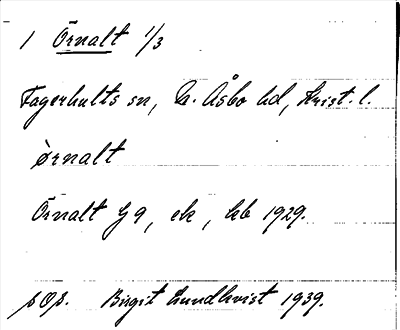 1 Örnalt 1/3
Fagerhults sn, N. Åsbo hd, Krist. l.
ørnalt
Örnalt Jg 9, ek, kb 1929.
Birgit Lundkvist 1939.